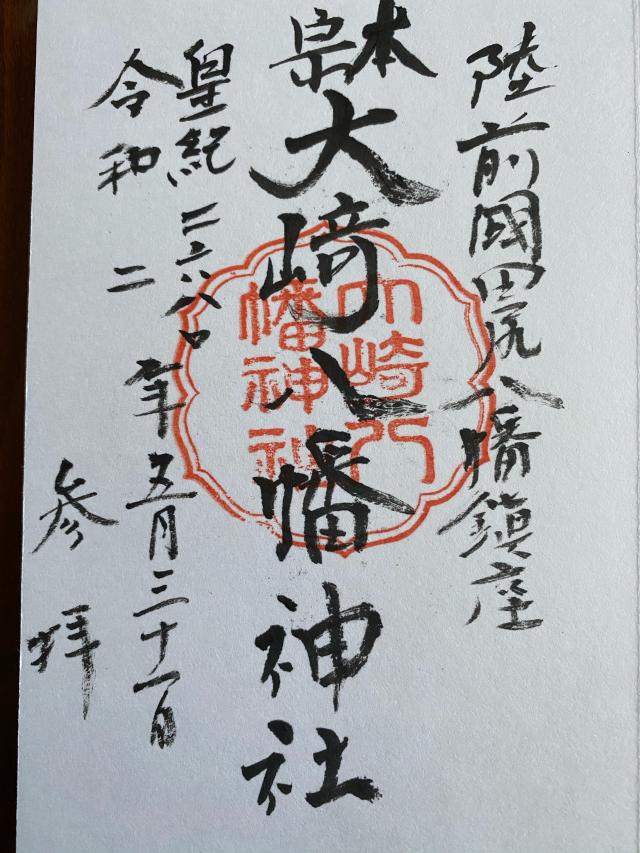 陸前國田尻八幡鎮座
本宗
大崎八幡神社
大崎八幡神社
皇紀二六八〇年五月三十一日
令和二
参拝